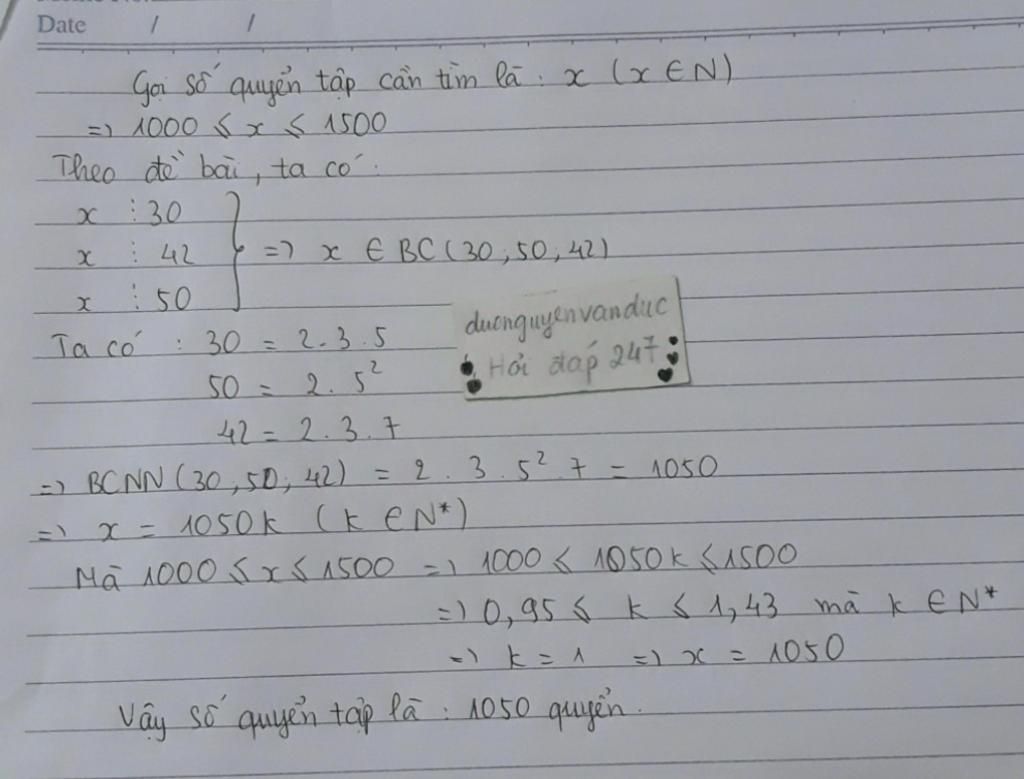 Date / /
Gọi số quyển tập cần tìm là : x (x ∈ N)
=> 1000 ≤ x ≤ 1500
Theo đề bài, ta có :
x ⋮ 30
x ⋮ 42 } => x ∈ BC (30, 50, 42)
x ⋮ 50
Ta có : 30 = 2.3.5
50 = 2.5²
42 = 2.3.7
ducnguyenvanduc
Hỏi đáp 247
=> BCNN (30, 50, 42) = 2 . 3 . 5² . 7 = 1050
=> x = 1050k (k ∈ N*)
Mà 1000 ≤ x ≤ 1500 => 1000 ≤ 1050k ≤ 1500
=> 0,95 ≤ k ≤ 1,43 mà k ∈ N*
=> k = 1 => x = 1050
Vậy số quyển tập là : 1050 quyển.